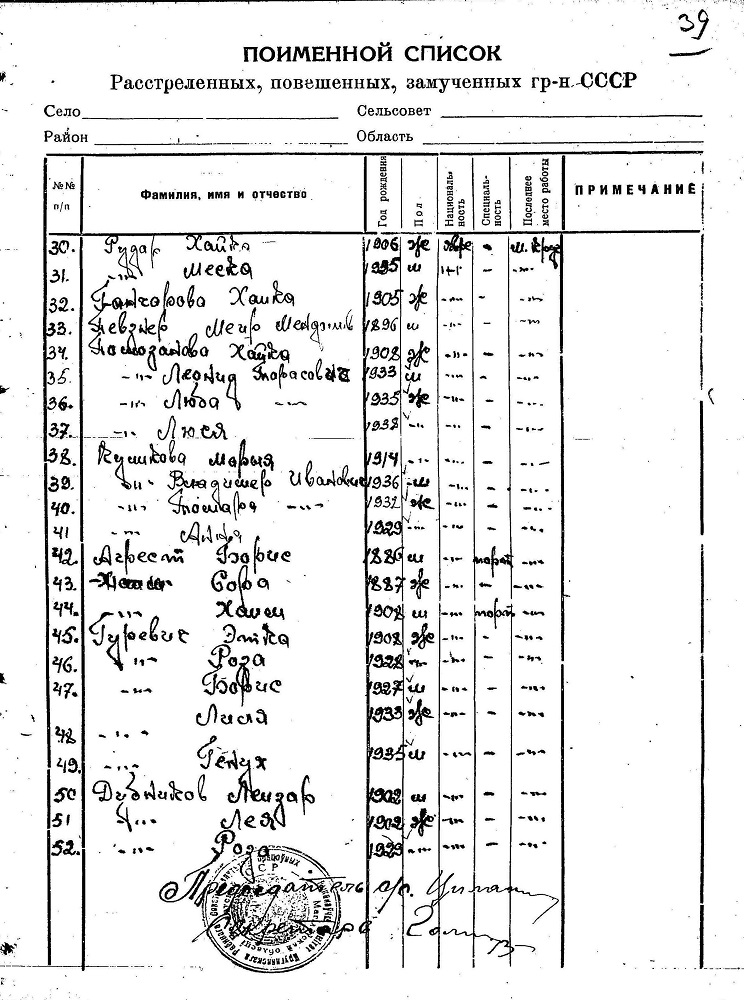 39
ПОИМЕННОЙ СПИСОК
Расстреленных, повешенных, замученных гр-н СССР
Село Сельсовет
Район Область
№№ п/п Фамилия, имя и отчество Год рождения Пол Националь-ность Специаль-ность Последнее место работы ПРИМЕЧАНИЕ
30. Рудар Хайка 1906 Ж евре -
31. -"- Меека 1935 м -"- - -"-
32. Гончарова Хаика 1905 Ж -"- - -"-
33. Певзнер Меир 1896 м -"- - -"-
34. Хайка 1908 Ж -"- - -"-
35. -"- Леонид Тарасович 1933 м -"- - -"-
36. -"- Люба -"- 1935 Ж -"- - -"-
37. -"- Люся 1938 -"- -"- - -"-
38. Кушкова Мария 1914 -"- -"- - -"-
39. -"- Владимер Иванович 1936 м -"- - -"-
40. -"- Томара -"- 1931 Ж -"- - -"-
41 -"- Анна 1929 -"- -"- - -"-
42. Агрест Борис 1886 м -"- порт -"-
43. Сора 1887 Ж -"- - -"-
44. -"- Хаим 1908 м -"- порт -"-
45. Гуревич Этка 1908 Ж -"- - -"-
46. -"- Роза 1928 -"- -"- - -"-
47. -"- Борис 1927 м -"- - -"-
48 -"- Лиля 1933 Ж -"- - -"-
49. -"- Генух 1935 м -"- - -"-
50 Дубников Лейзар 1902 м -"- - -"-
51 -"- Лея 1902 Ж -"- - -"-
52. -"- Роза 1929 -"- -"- - -"-
Председатель с/с.
Секретарь